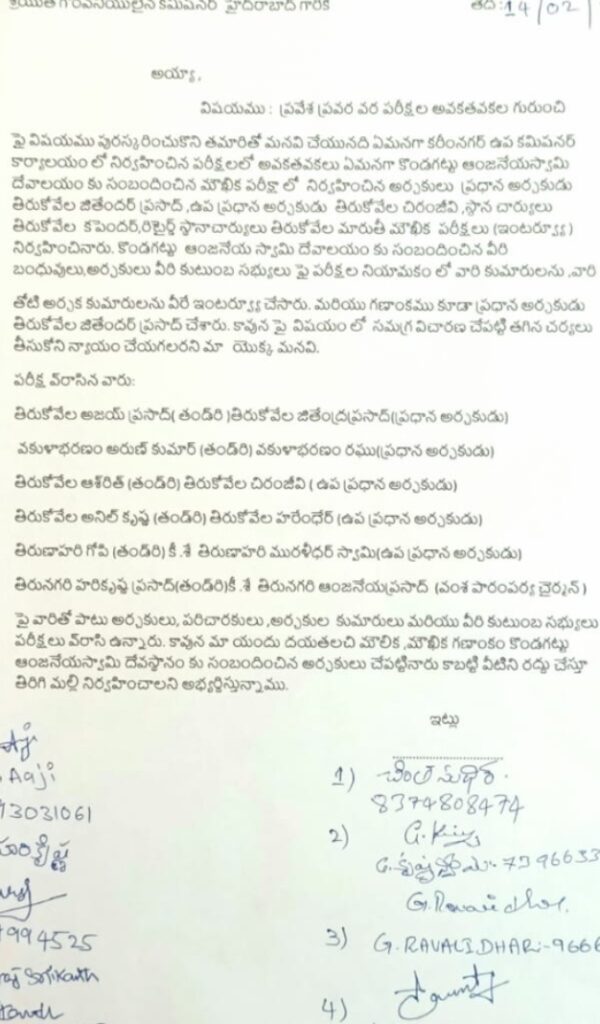 శ్రీయుత గౌరవనీయులైన కమిషనర్ హైదరాబాద్ గారికి తేది:14/02/
అయ్యా,
విషయము : ప్రవేశ ప్రవర వర పరీక్షల అవకతవకల గురుంచి
పై విషయము పురస్కరించుకొని తమారితో మనవి చేయునది ఏమనగా కరీంనగర్ ఉప కమిషనర్
కార్యాలయం లో నిర్వహించిన పరీక్షలలో అవకతవకలు ఏమనగా కొండగట్టు ఆంజనేయస్వామి
దేవాలయం కు సంబందించిన మౌఖిక పరీక్షా లో నిర్వహించిన అర్చకులు ప్రధాన అర్చకుడు
తిరుకోవేల జితేందర్ ప్రసాద్ ,ఉప ప్రధాన అర్చకుడు తిరుకోవేల చిరంజీవి, స్థాన చార్యులు
తిరుకోవేల కపెందర్,రిటైర్డ్ స్థానాచార్యులు తిరుకోవేల మారుతీ మౌఖిక పరీక్షలు (ఇంటర్వ్యూ)
నిర్వహించినారు. కొండగట్టు ఆంజనేయ స్వామి దేవాలయం కు సంబందించిన వీరి
బంధువులు,అర్చకులు వీరి కుటుంబ సభ్యులు పై పరీక్షల నియామకం లో వారి కుమారులను ,వారి
తోటి అర్చక కుమారులను వీరే ఇంటర్వ్యూ చేసారు. మరియు గణాంకము కూడా ప్రధాన అర్చకుడు
తిరుకోవేల జితేందర్ ప్రసాద్ చేశారు. కావున పై విషయం లో సమగ్ర విచారణ చేపట్టి తగిన చర్యలు
తీసుకోని న్యాయం చేయగలరని మా యొక్క మనవి.
పరీక్ష వ్‌రాసిన వారు:
తిరుకోవేల అజయ్ ప్రసాద్( తండ్‌రి )తిరుకోవేల జితేంద్రప్రసాద్(ప్రధాన అర్చకుడు)
వకుళాభరణం అరుణ్ కుమార్ (తండ్‌రి) వకుళాభరణం రఘు(ప్రధాన అర్చకుడు)
తిరుకోవేల ఆశ్‌రిత్ (తండ్‌రి) తిరుకోవేల చిరంజీవి ( ఉప ప్రధాన అర్చకుడు)
తిరుకోవేల అనిల్ కృష్ణ (తండ్‌రి) తిరుకోవేల హరేంధేర్ (ఉప ప్రధాన అర్చకుడు)
తిరుణాహరి గోపి (తండ్‌రి) కీ.శే తిరుణాహరి మురళీధర్ స్వామి(ఉప ప్రధాన అర్చకుడు)
తిరునగరి హరికృష్ణ ప్రసాద్(తండ్‌రి)కీ.శే తిరునగరి ఆంజనేయప్రసాద్ (వంశ పారంపర్య చైర్మన్ )
పై వారితో పాటు అర్చకులు, పరిచారకులు ,అర్చకుల కుమారులు మరియు వీరి కుటుంబ సభ్యులు
పరీక్షలు వ్‌రాసి ఉన్నారు. కావున మా యందు దయతలచి మౌలిక ,మౌఖిక గణాంకం కొండగట్టు
ఆంజనేయస్వామి దేవస్థానం కు సంబందించిన అర్చకులు చేపట్టినారు కాబట్టి వీటిని రద్దు చేస్తూ
తిరిగి మల్లి నిర్వహించాలని అభ్యర్థిస్తున్నాము.
ఇట్లు
Aaji
13031061
హరికృష్ణ
994525
Srikanth
1)
8374808474
2) G.Kiy
75 96633
G.Ravalidhar
3) G.RAVALIDHAR:-9666
4)